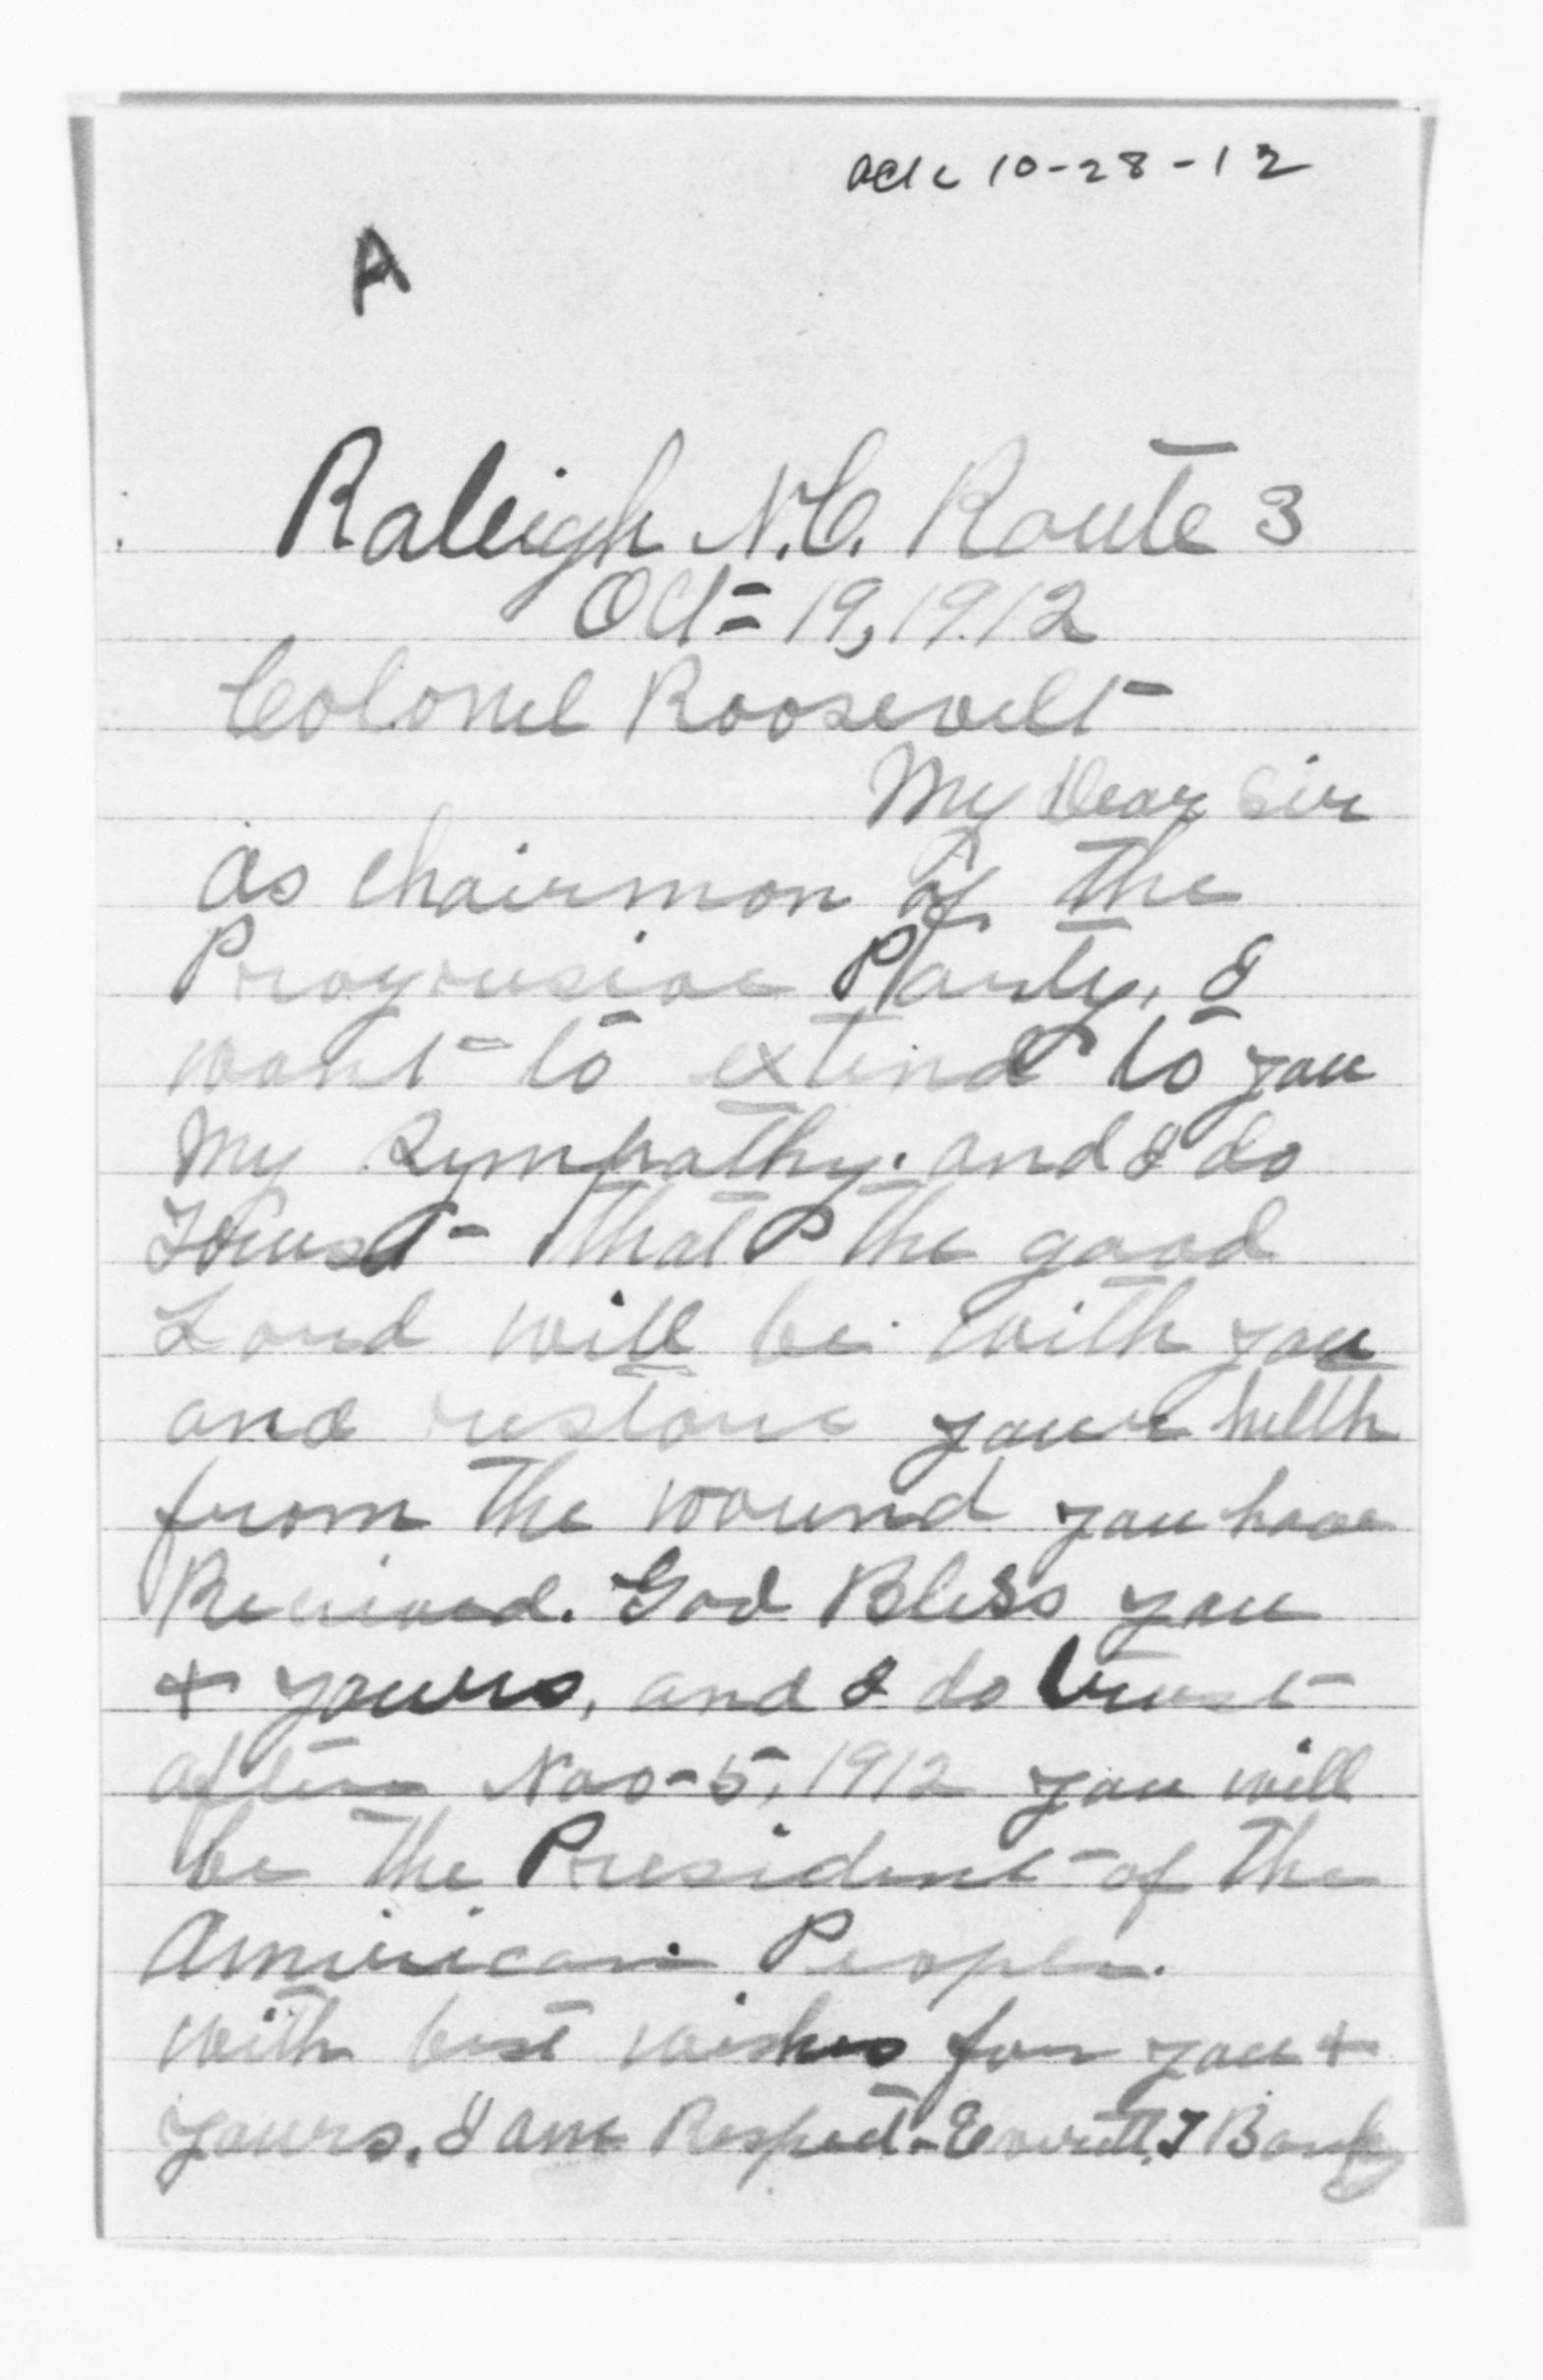 ack 10-28-12
A
Raleigh N.C. Route 3
Oct= 19, 1912
Colonel Roosevelt
My Dear Sir
as chairman of the
Progrusive Party, I
want to extend to you
My Sympathy. and I do
Trust that the good
Lord will be with you
and restore your helth
from the wound you have
Recieved. God Bless you
+ yours, and I do trust
after Nov-5, 1912 you will
be the President of the
American People.
with best wishes for you +
yours. I am Respect- Everett